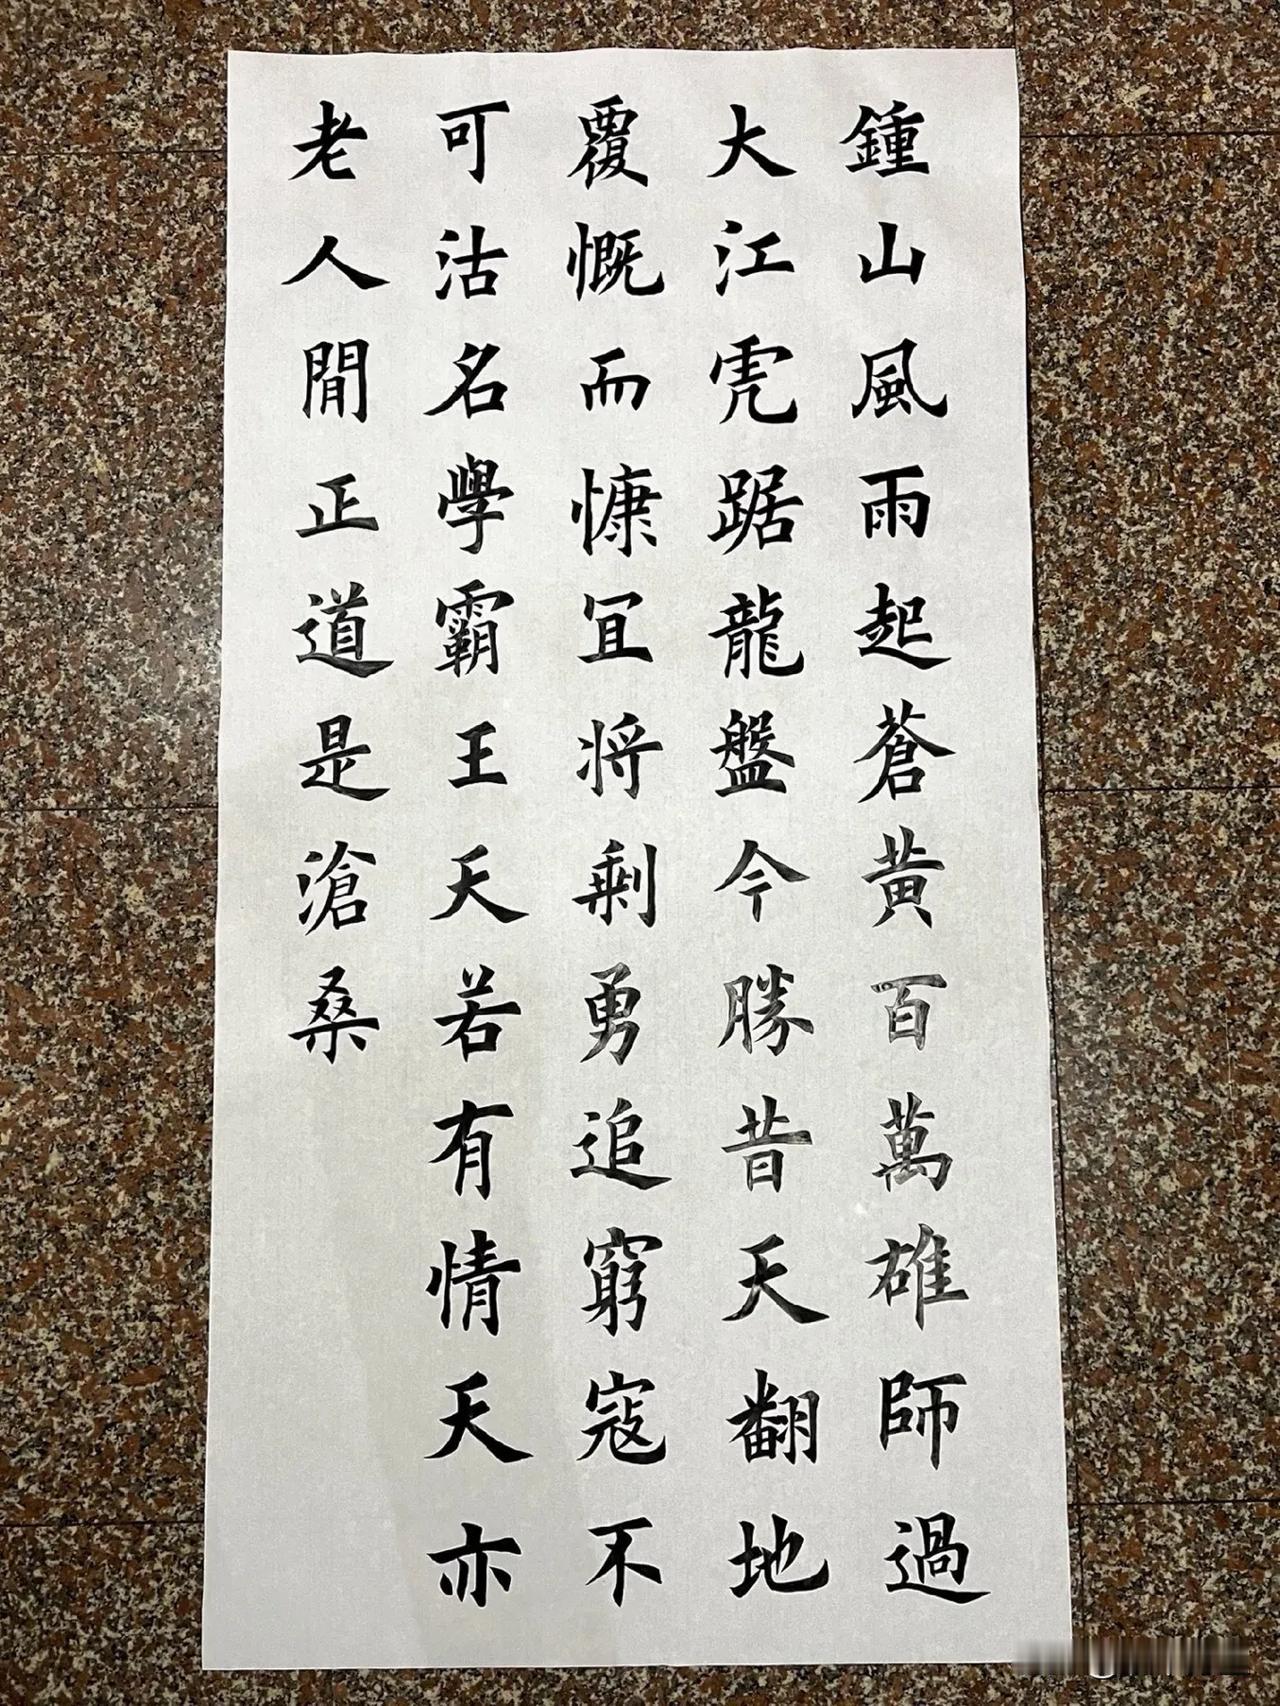 鍾山風雨起蒼黃百萬雄師過
大江虎踞龍盤今勝昔天翻地
覆慨而慷宜將剩勇追窮寇不
可沽名學霸王天若有情天亦
老人間正道是滄桑